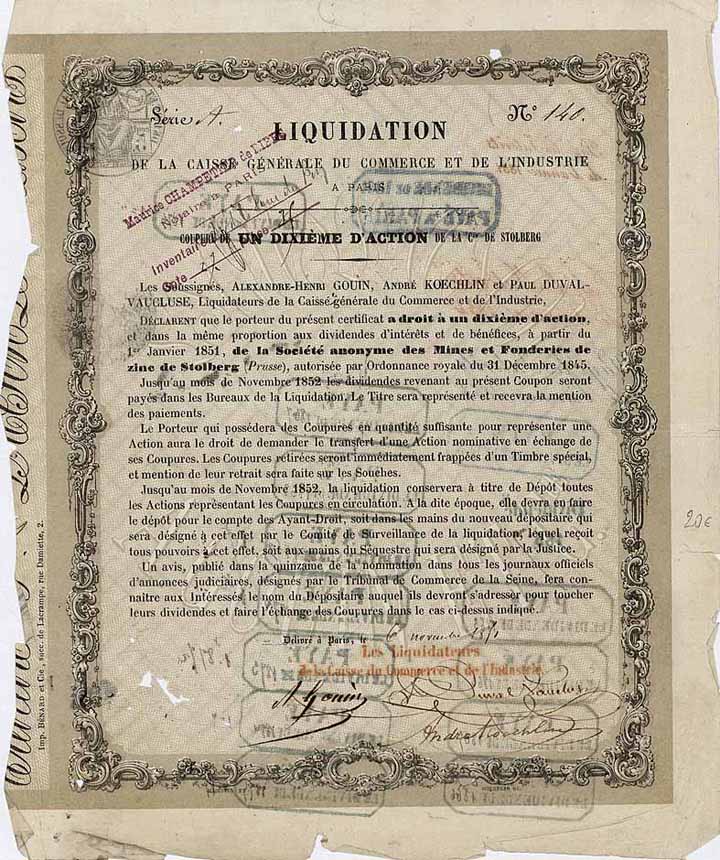 Série A. N° 140.
LIQUIDATION
DE LA CAISSE GÉNÉRALE DU COMMERCE ET DE L'INDUSTRIE
A PARIS
Maurice CHAMPETIER de RIBES
Notaire à PARIS
Inventaire
Cote
COUPURE DE UN DIXIÈME D'ACTION DE LA Cie DE STOLBERG
Les Soussignés, ALEXANDRE-HENRI GOUIN, ANDRÉ KOECHLIN et PAUL DUVAL-
VAUCLUSE, Liquidateurs de la Caisse générale du Commerce et de l'Industrie,
DÉCLARENT que le porteur du présent certificat a droit à un dixième d'action,
et dans la même proportion aux dividendes d'intérêts et de bénéfices, à partir du
1er Janvier 1851, de la Société anonyme des Mines et Fonderies de
zinc de Stolberg (Prusse), autorisée par Ordonnance royale du 31 Décembre 1845.
Jusqu'au mois de Novembre 1852 les dividendes revenant au présent Coupon seront
payés dans les Bureaux de la Liquidation. Le Titre sera représenté et recevra la mention
des paiements.
Le Porteur qui possédera des Coupures en quantité suffisante pour représenter une
Action aura le droit de demander le transfert d'une Action nominative en échange de
ses Coupures. Les Coupures retirées seront immédiatement frappées d'un Timbre spécial,
et mention de leur retrait sera faite sur les Souches.
Jusqu'au mois de Novembre 1852, la liquidation conservera à titre de Dépôt toutes
les Actions représentant les Coupures en circulation. A la dite époque, elle devra en faire
le dépôt pour le compte des Ayant-Droit, soit dans les mains du nouveau dépositaire qui
sera désigné à cet effet par le Comité de Surveillance de la liquidation, lequel reçoit
tous pouvoirs à cet effet, soit aux mains du Séquestre qui sera désigné par la Justice.
Un avis, publié dans la quinzaine de la nomination dans tous les journaux officiels
d'annonces judiciaires, désignés par le Tribunal de Commerce de la Seine, fera con-
naître aux Intéressés le nom du Dépositaire auquel ils devront s'adresser pour toucher
leurs dividendes et faire l'échange des Coupures dans le cas ci-dessus indiqué.
Délivré à Paris, le 6 novembre 1851
Les Liquidateurs
de la Caisse du Commerce et de l'Industrie
Imp. BÉNARD et Cie, succ. de Lacrampe, rue Damiette, 2.
20€